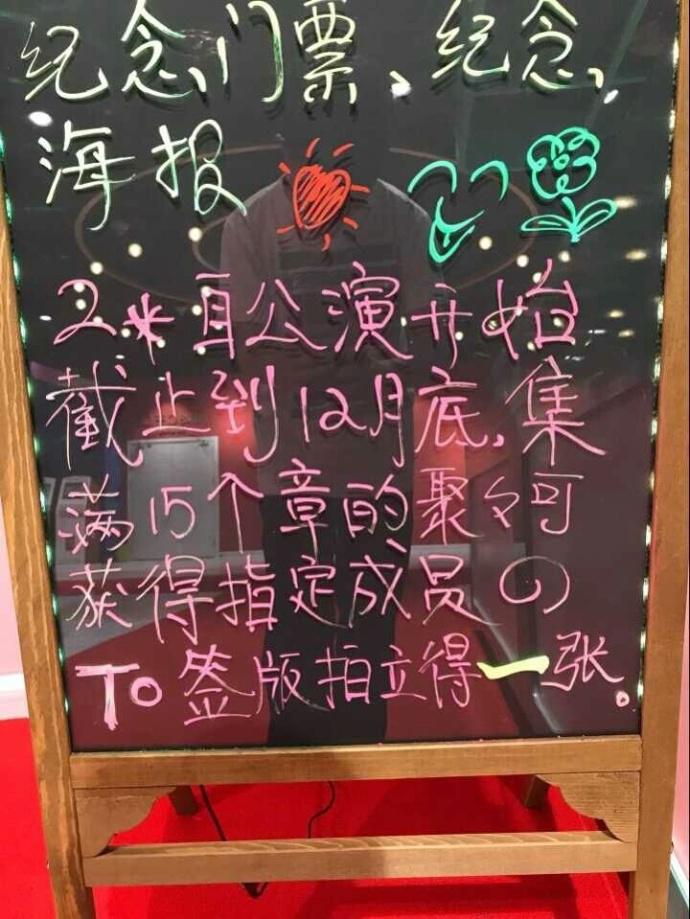 纪念门票、纪念
海报
2*自公演开始
截止到12月底,集
满15个章的聚々可
获得指定成员の
To签版拍立得一张。